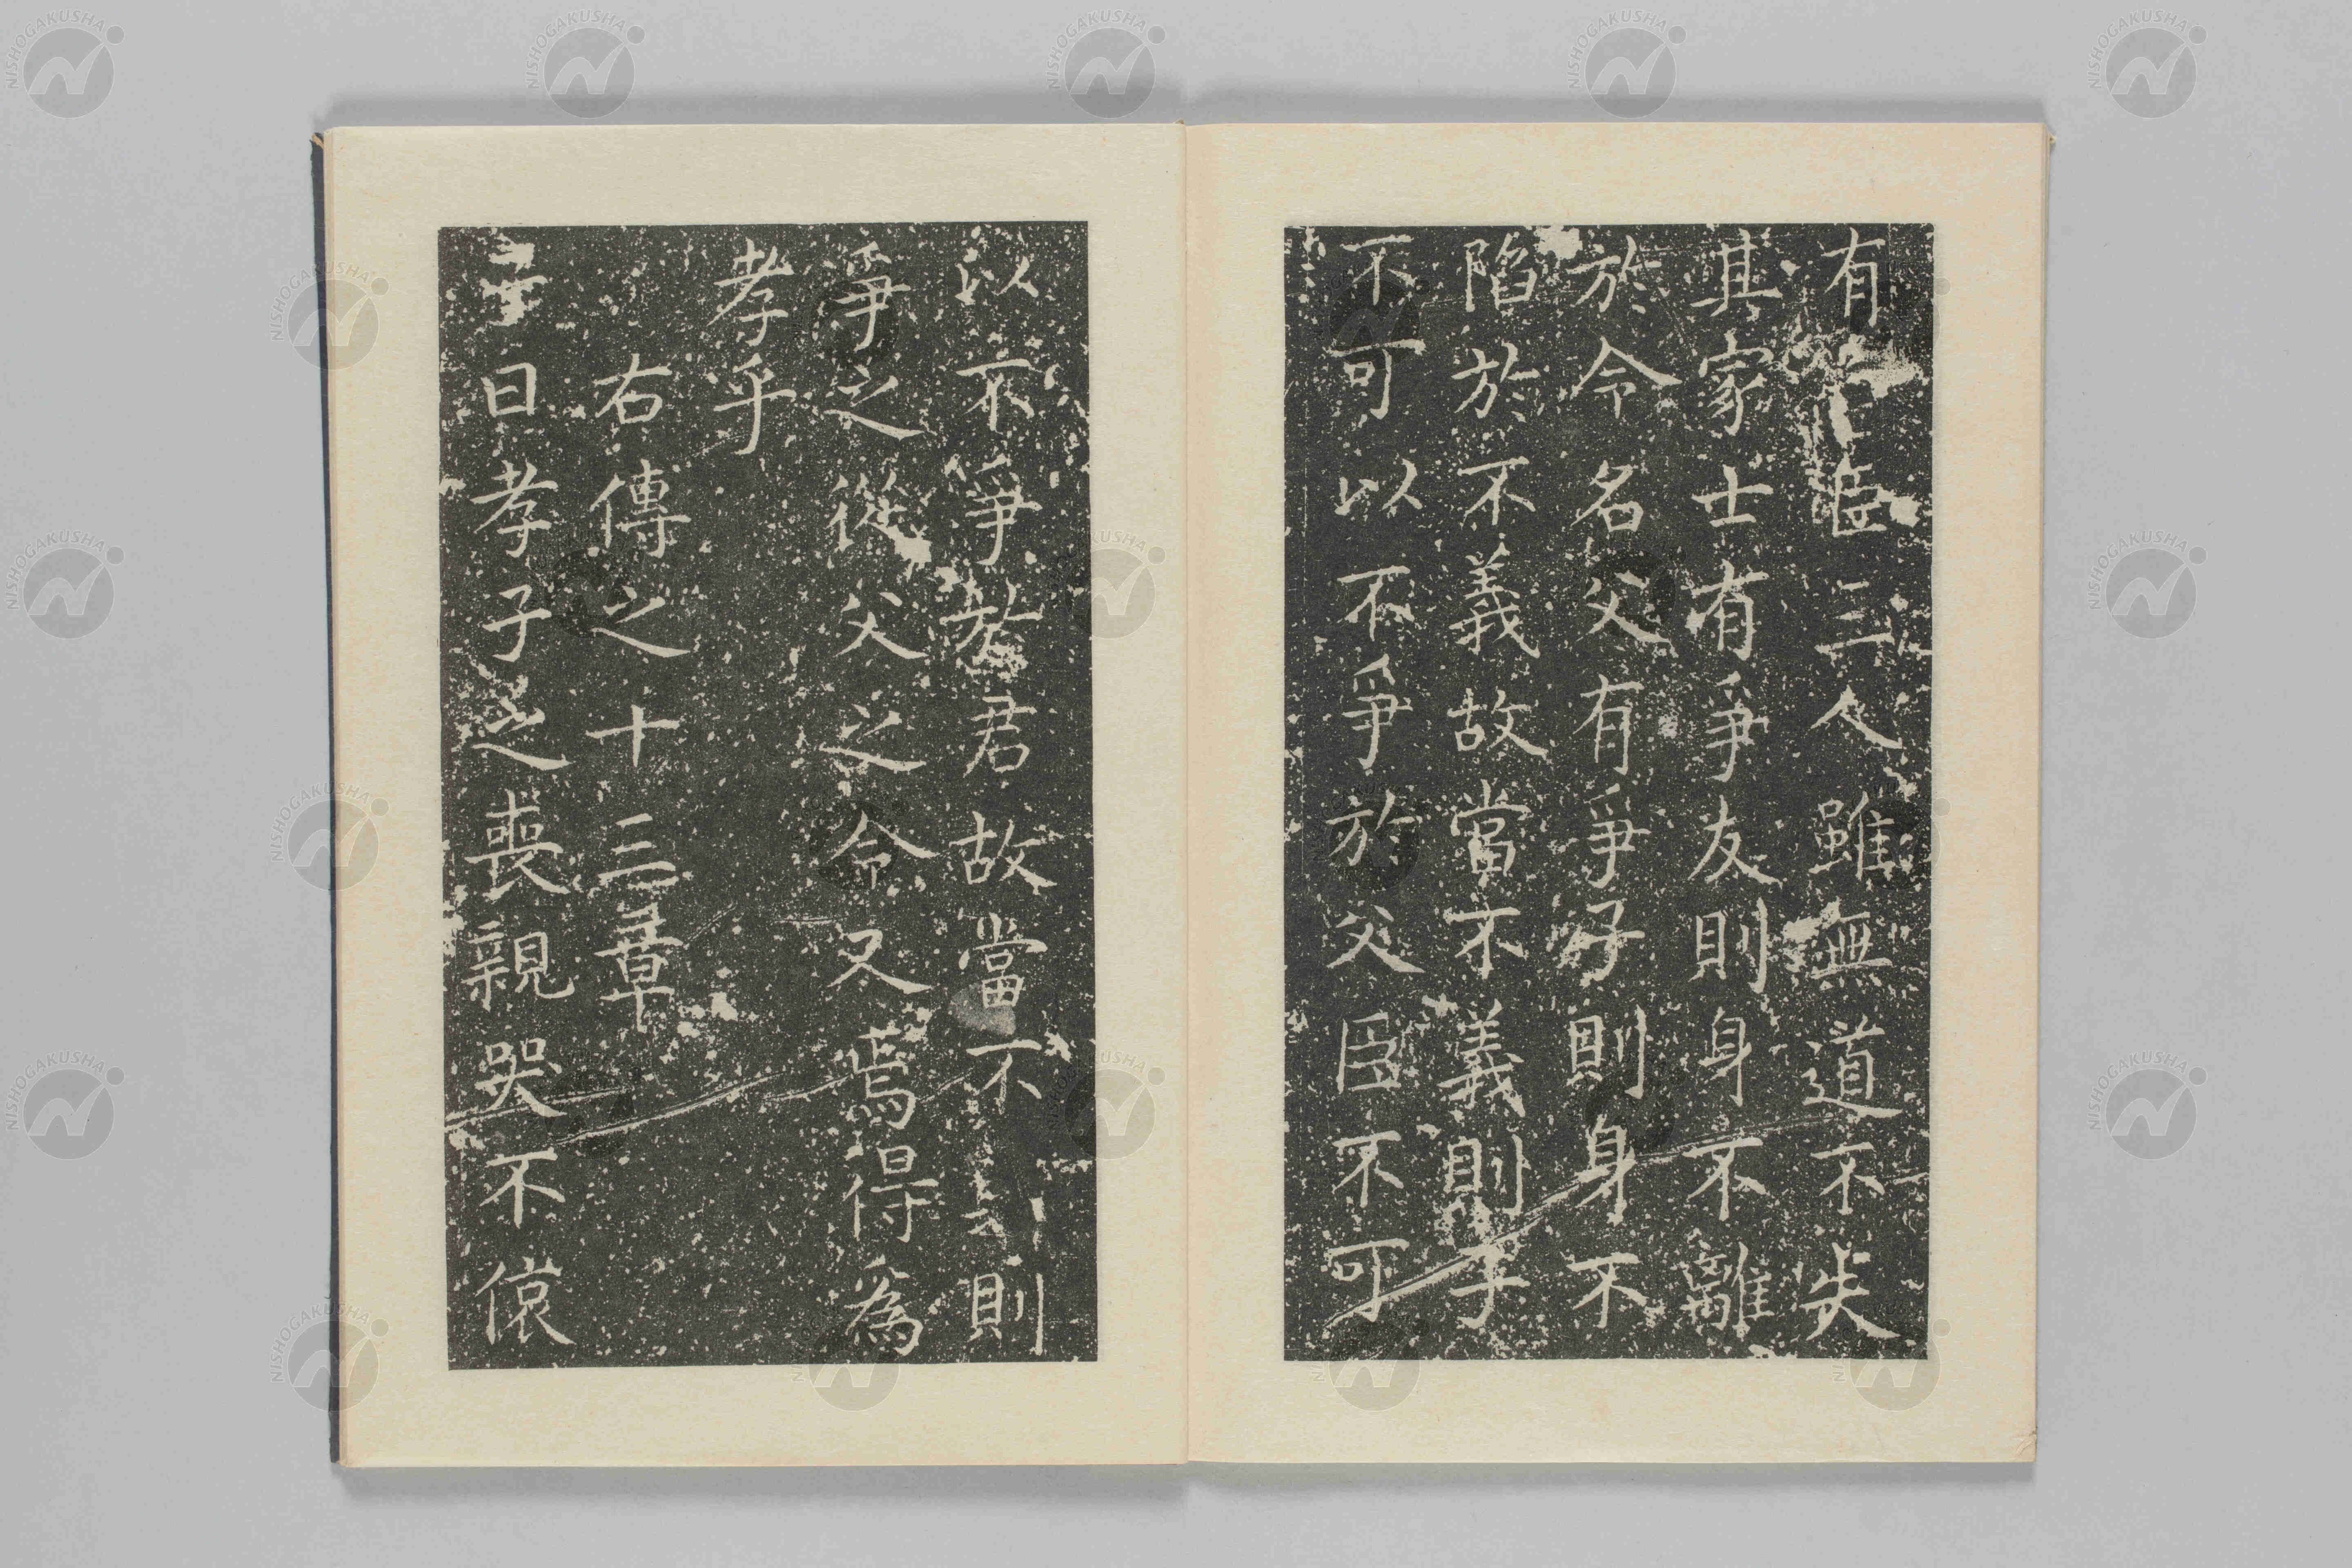 有臣三人雖無道不失
其家士有爭友則身不離
於令名父有爭子則身不
陷於不義故當不義則子
不可以不爭於父臣不可
以不爭君故當不則
爭之從父之命又焉得為
孝乎
右傳之十三章
子曰孝子之喪親哭不偯
NISHOGAKUSHA